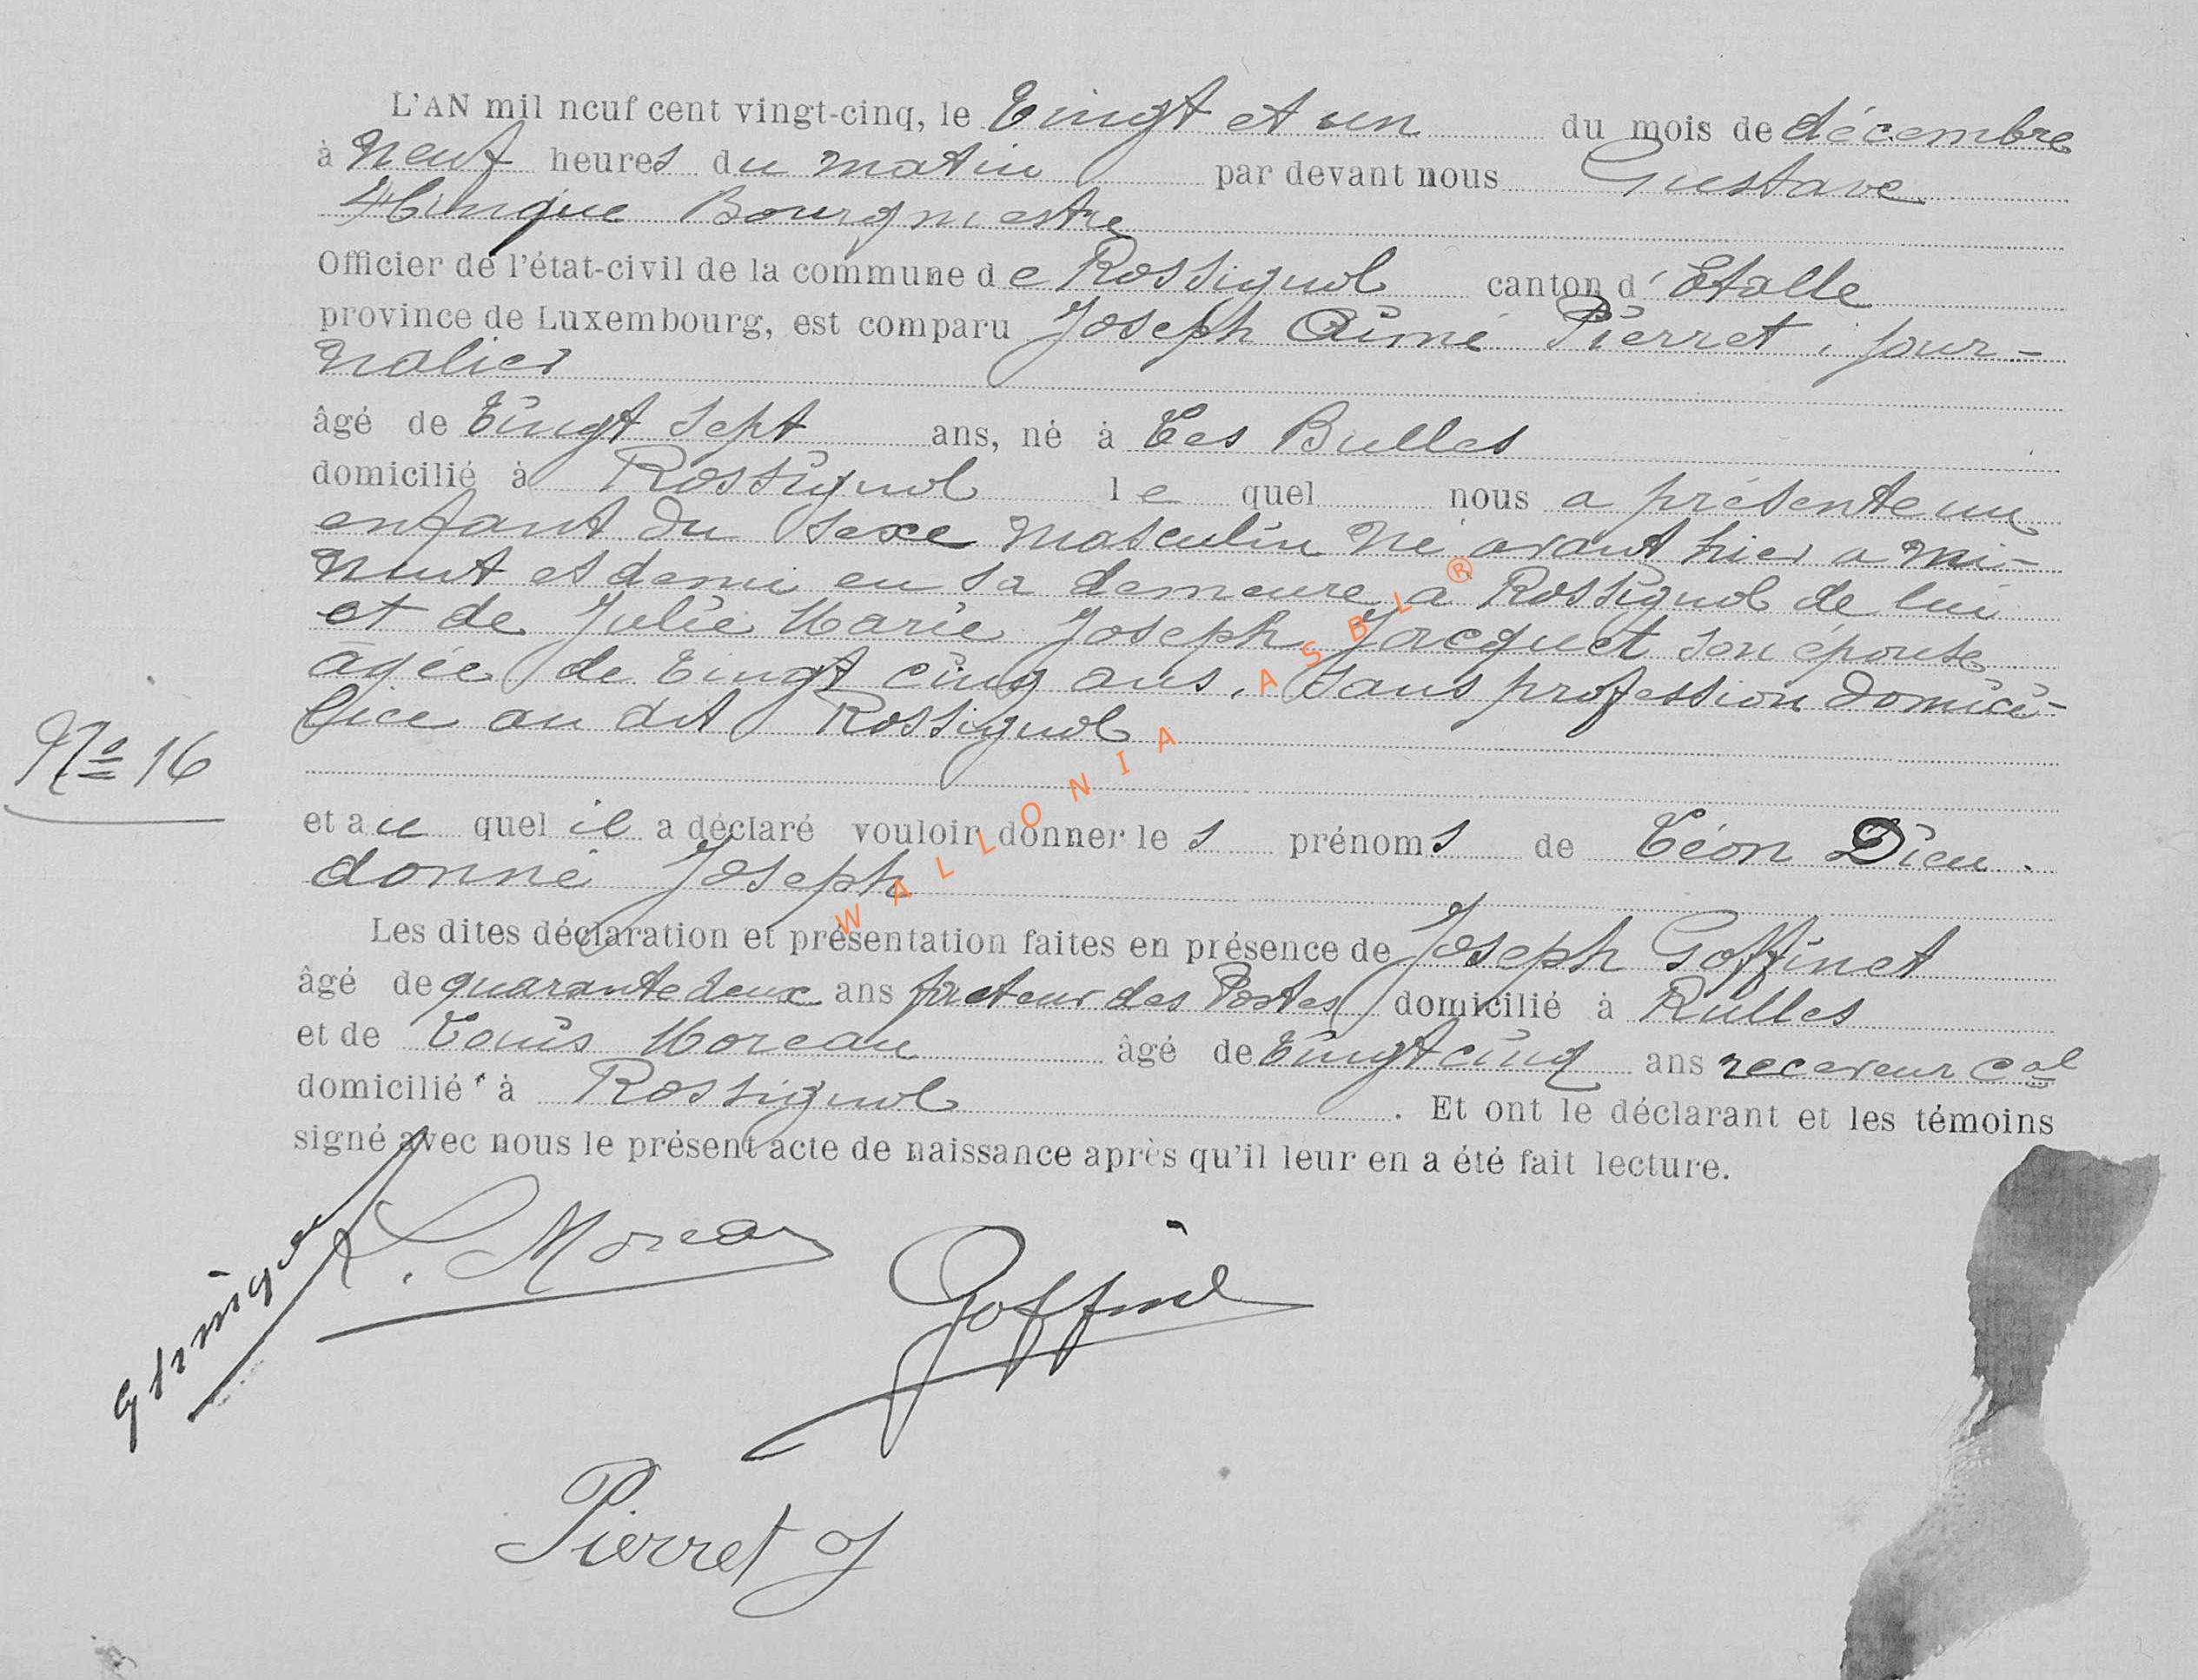 L'AN mil neuf cent vingt-cinq, le Vingt et un du mois de décembre
à Neuf heures du matin par devant nous Gustave
Hiumque Bourgmestre
Officier de l'état-civil de la commune de Rossignol canton d'Etalle
province de Luxembourg, est comparu Joseph Aimé Pierret, jour-
nalier
âgé de Vingt sept ans, né à Les Bulles
domicilié à Rossignol lequel nous a présenté un
enfant du sexe masculin né avant hier a mi-
nuit et demi en sa demeure a Rossignol de lui
et de Julie Marie Joseph Jacquet son épouse
agée de Vingt cinq ans, sans profession domici-
liée au dit Rossignol
No 16
et auquel il a déclaré vouloir donner les prénoms de Léon Dieu-
donné Joseph
Les dites déclaration et présentation faites en présence de Joseph Goffinet
âgé de quarante deux ans facteur des Postes domicilié à Rulles
et de Louis Moreau âgé de Vingt cinq ans receveur cal
domicilié à Rossignol. Et ont le déclarant et les témoins
signé avec nous le présent acte de naissance après qu'il leur en a été fait lecture.
L. Moreau
Goffinet
Pierret J
WALLONIA ASBL ®